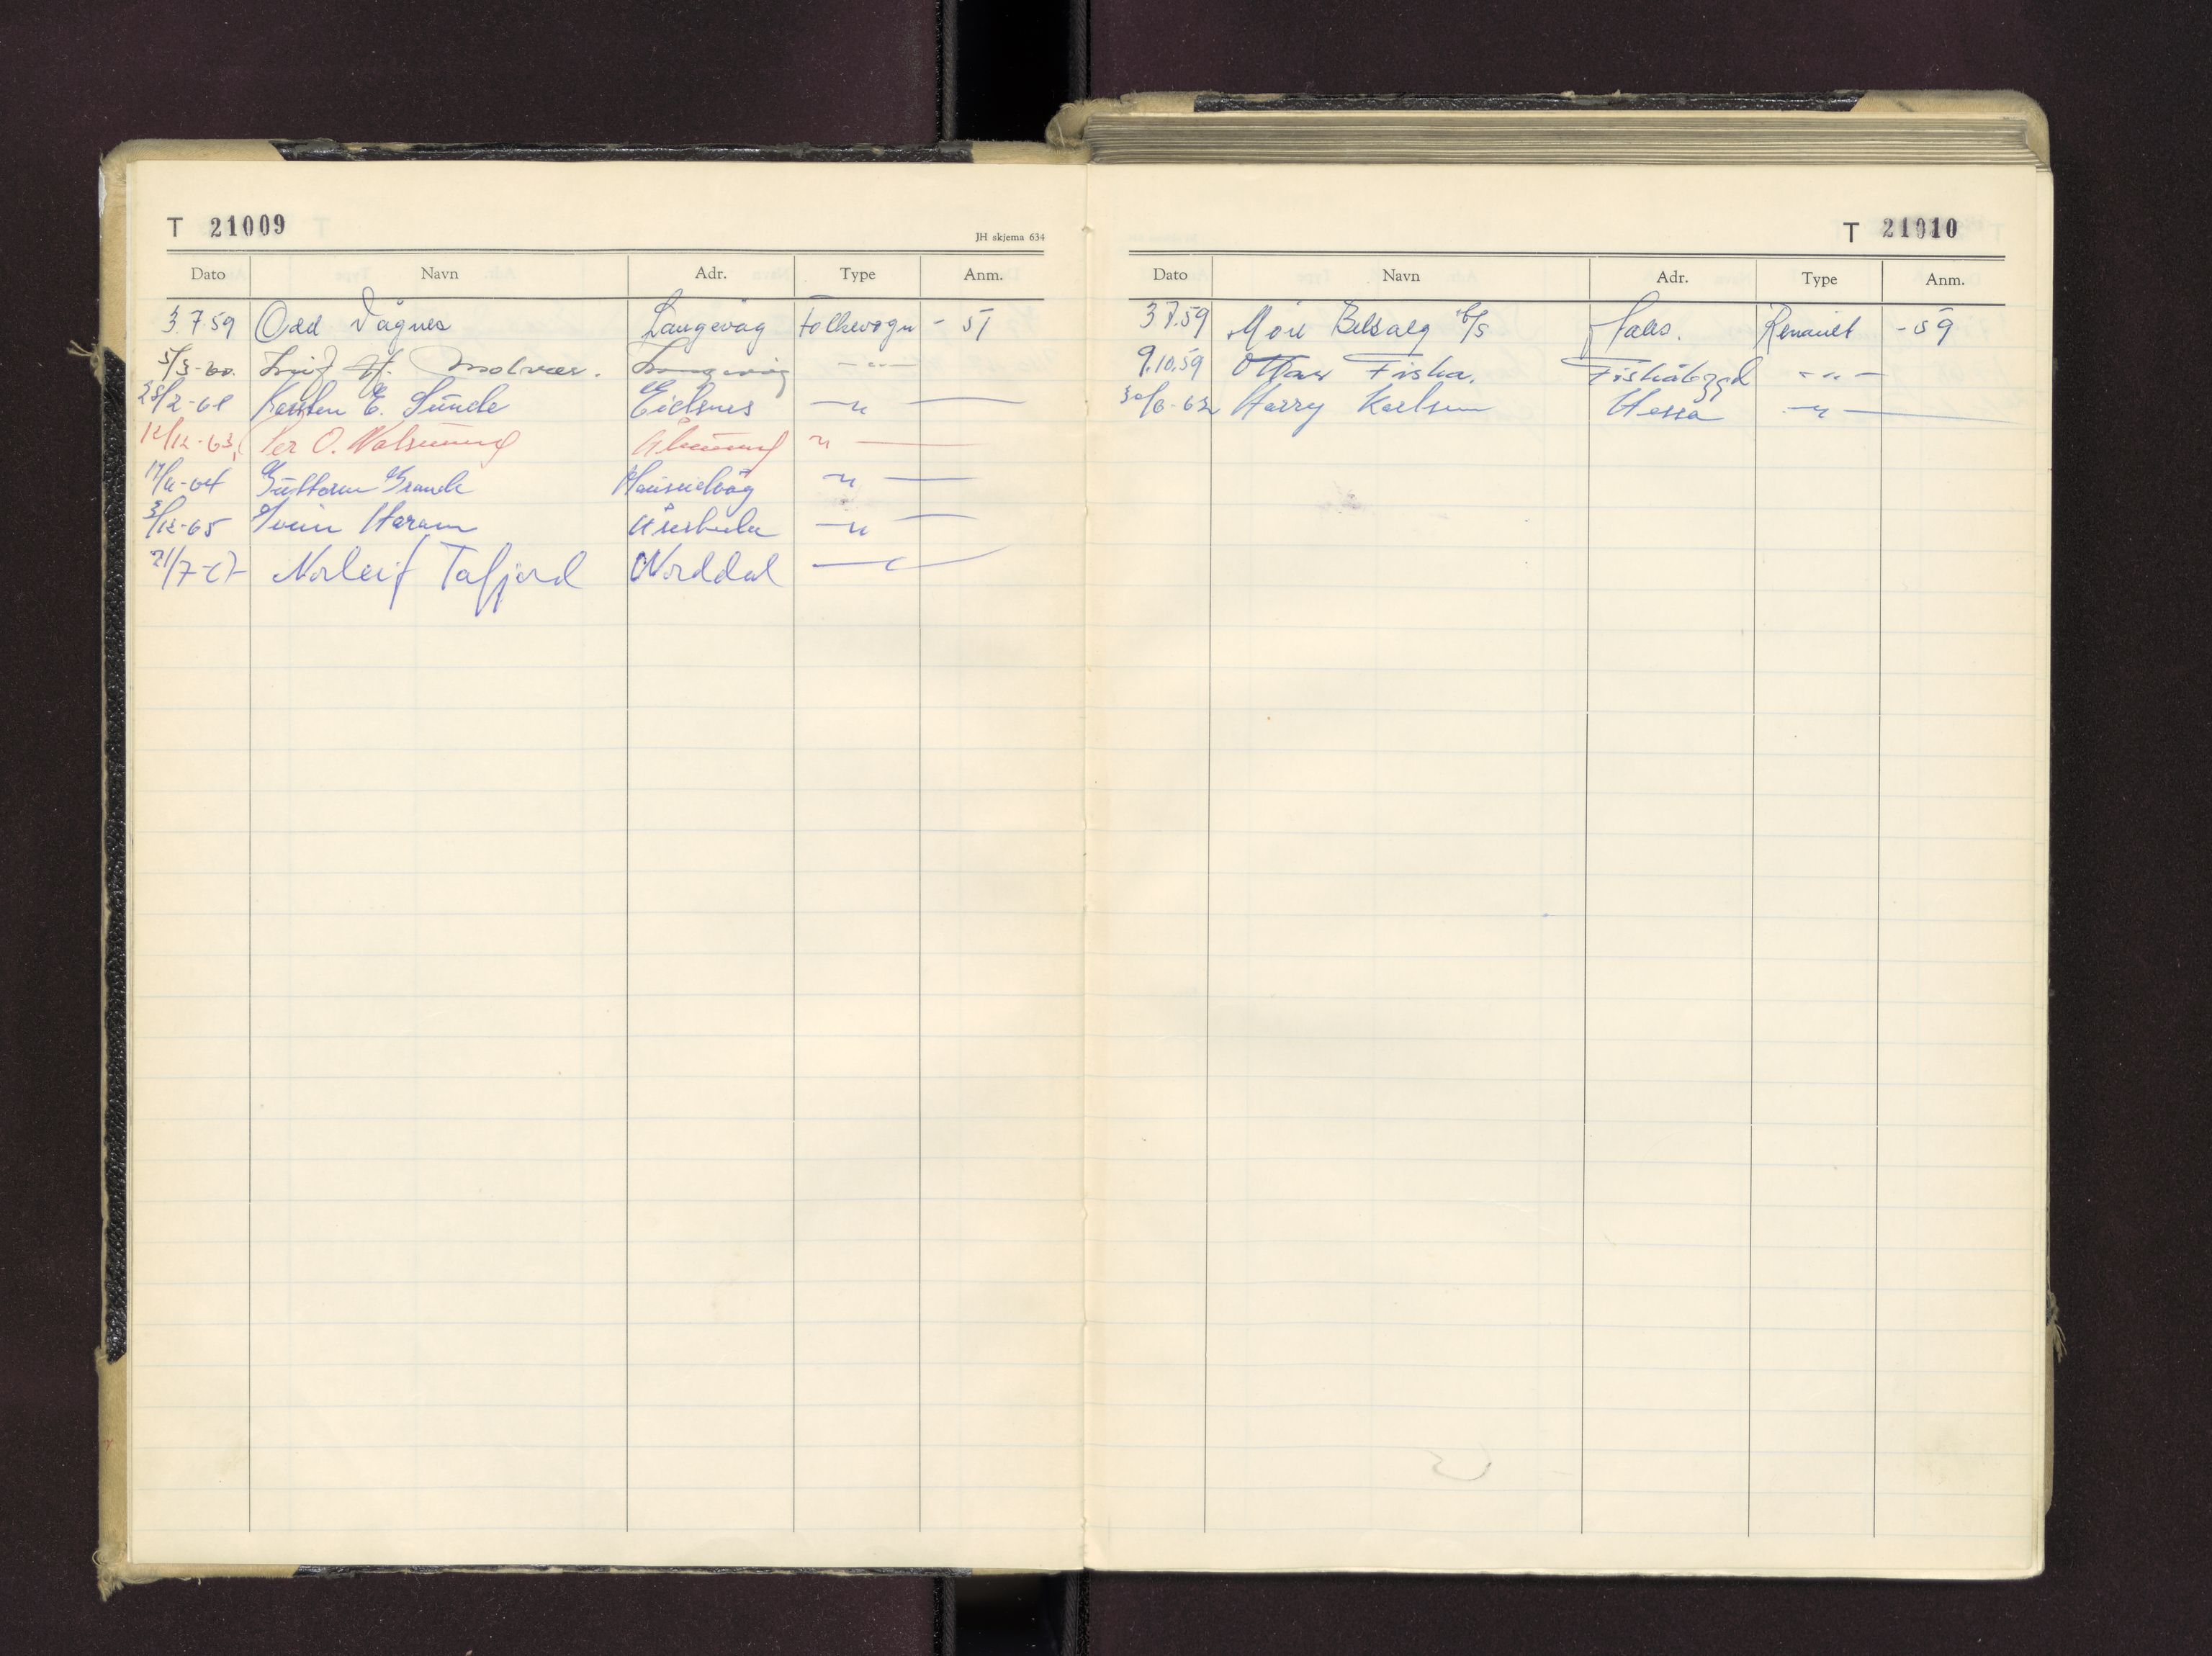 T 21009
JH skjema 634
Dato Navn Adr. Type Anm.
3.7.59 Odd Vågnes Langevåg Folkevogn - 51
5/3-60. H. Molvær. Langevåg -"-
2-61 Karsten E. Sunde Eidsnes -"-
12/12-63 Per O. Valsund Ålesund "
-64 Guttorm Grande "
3/12-65 Svein Haram -"-
21/7-67 Norleif Tafjord Norddal
T 21010
Dato Navn Adr. Type Anm.
3.7.59 Møre Bilsalg A/S Renault - 59
9.10.59 Ottar Fiskå. Fiskåbygd -"-
30/6-62 Harry Karlsen Hessa -"-